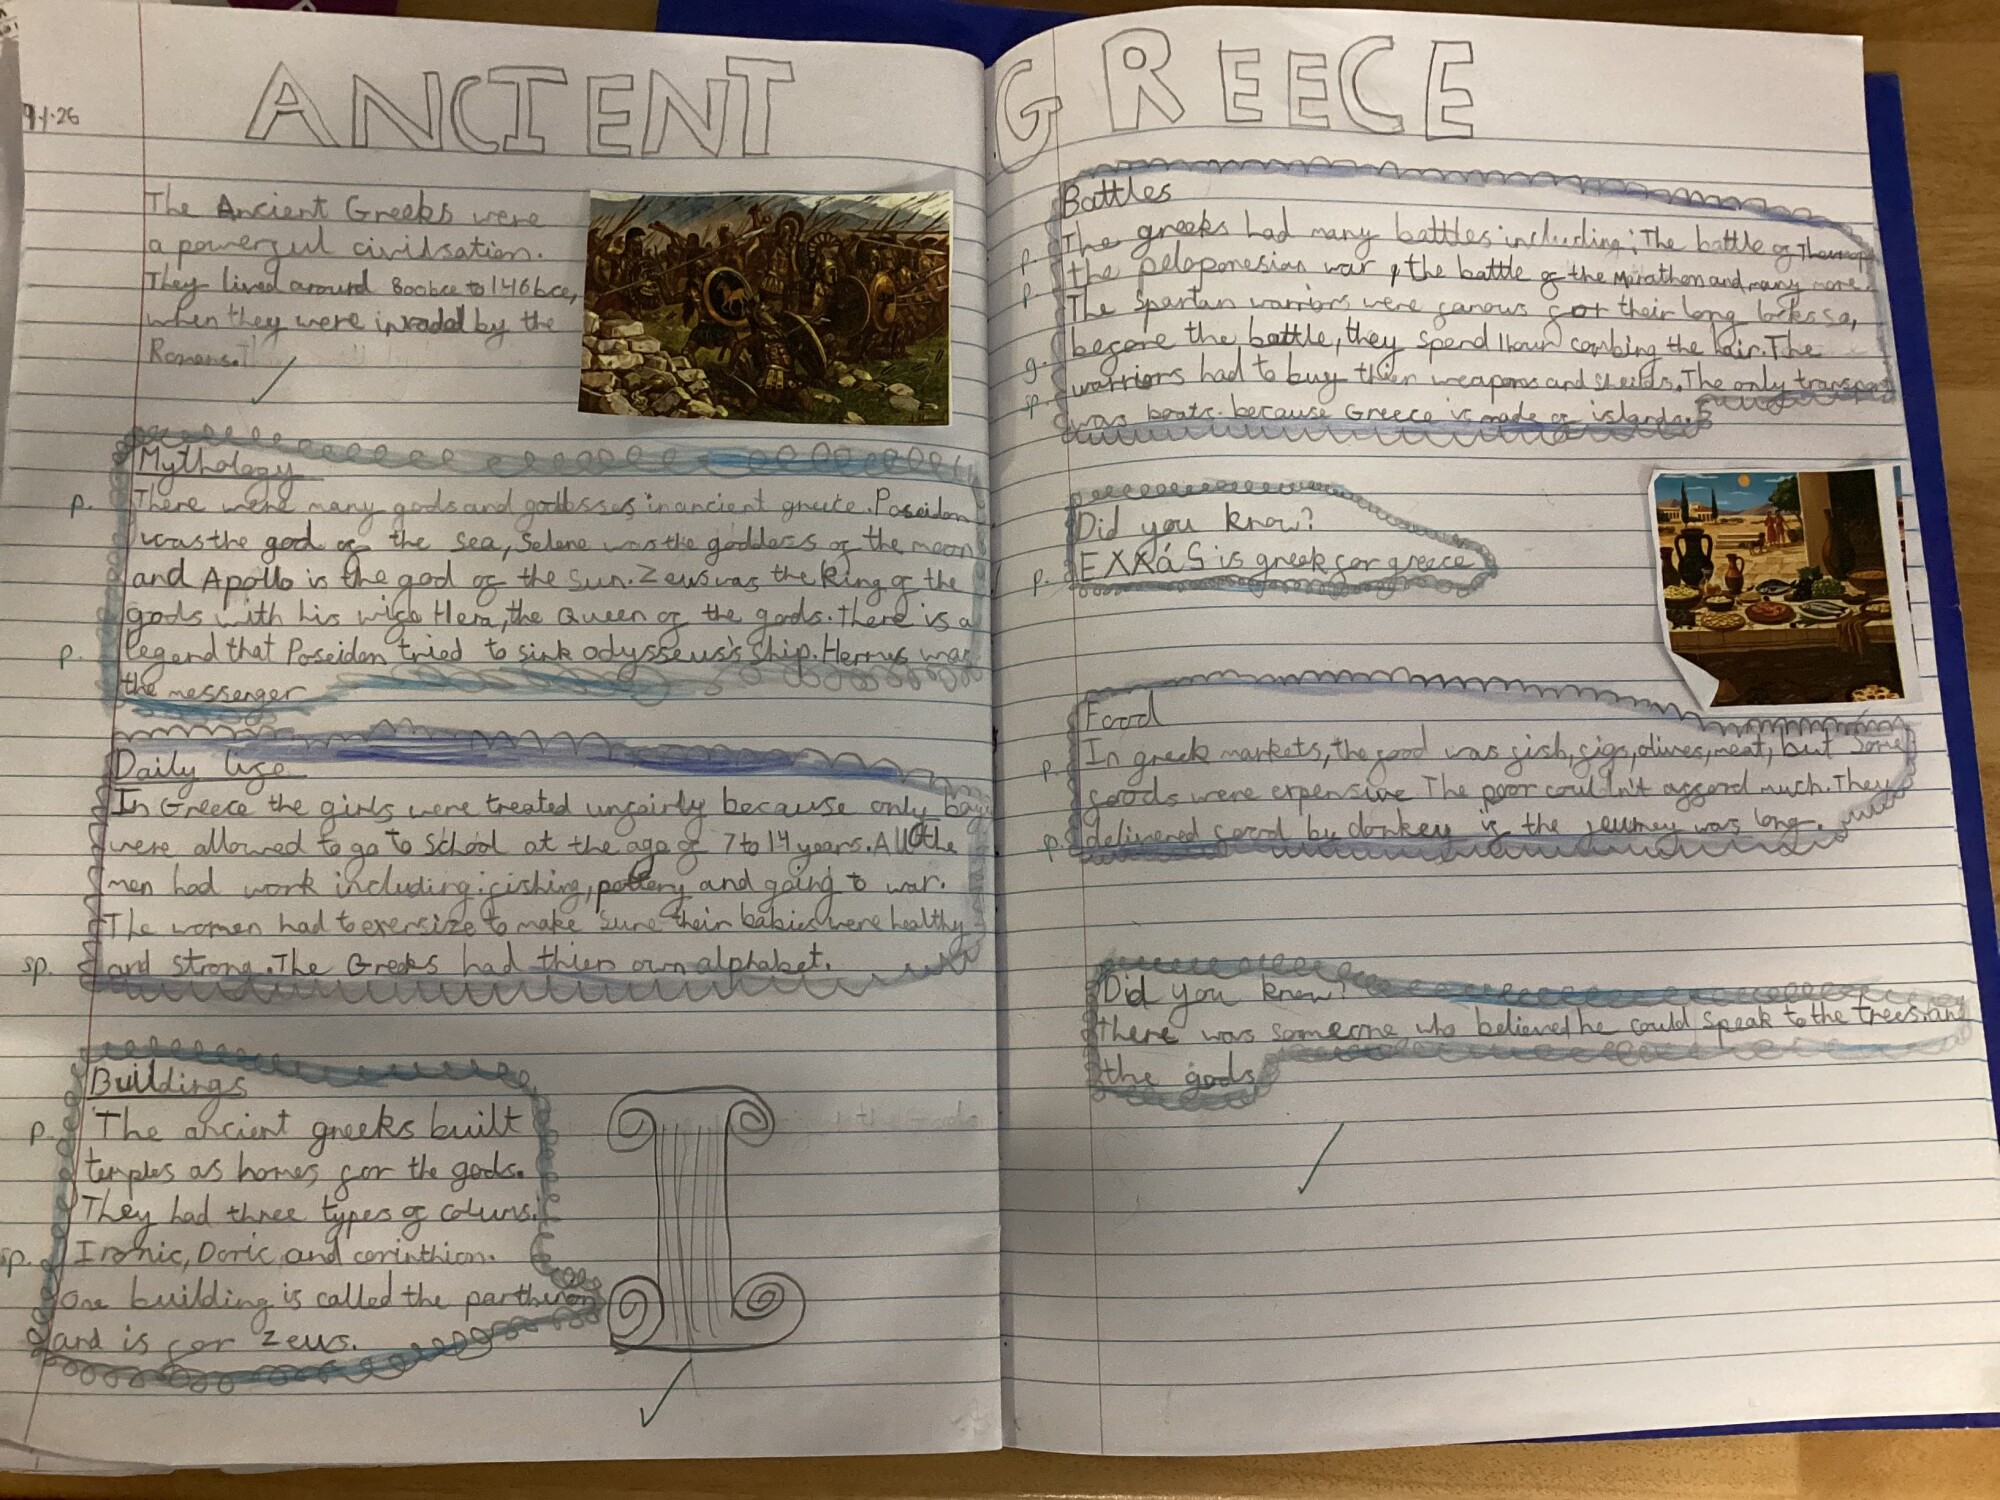 ANCIENT GREECE
The Ancient Greeks were
a powerful civilsation.
They lived around 800bce to 146bce,
when they were invaded by the
Romans.
Mythology
p. There were many gods and goddesses in ancient greece. Poseidon
was the god of the sea, Selene was the goddess of the moon
and Apollo is the god of the sun. Zeus was the king of the
gods with his wife Hera, the Queen of the gods. There is a
p. legend that Poseidon tried to sink odysseus's ship. Hermes was
the messenger
Daily life
In Greece the girls were treated unfairly because only boys
were allowed to go to school at the age of 7 to 14 years. All the
men had work including: fishing, pottery and going to war.
The women had to exersize to make sure their babies were healthy
sp. and strong. The Greeks had thier own alphabet.
Buildings
p. The ancient greeks built
temples as homes for the gods.
They had three types of colums:
sp. Ironic, Doric and corinthion.
One building is called the parthenon
and is for Zeus.
Battles
p. The greeks had many battles including; The battle of
p. the peloponesian war, the battle of the Marathon and many more.
The Spartan warriors were famous for their long locks so,
g. before the battle, they spend 1 hour combing the hair. The
sp. warriors had to buy thier weapons and sheilds. The only transport
was boats because Greece is made of islands.
Did you know?
p. EXXáS is greek for greece
Food
p. In greek markets, the food was fish, figs, olives, meat, but some
foods were expensive The poor couldn't afford much. They
p. delivered food by donkey if the journey was long.
Did you know?
there was someone who believed he could speak to the trees and
the gods